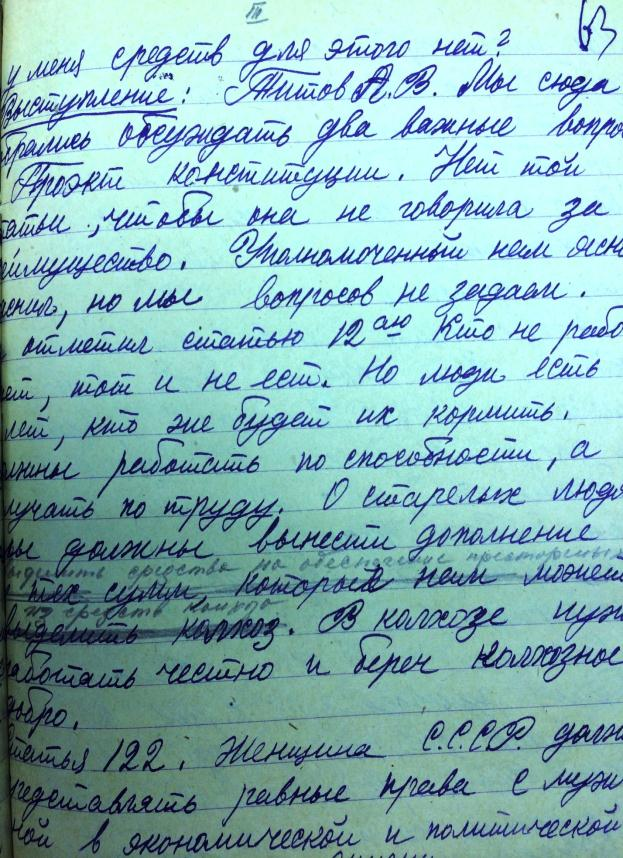 III
63
у меня средств для этого нет?
Выступление: Титов А.В. Мы сюда
брались обсуждать два важные вопро
Проэкт конституции. Нет той
татьи, чтобы она не говорила за
еимущество. Уполномоченный нам ясно
но мы вопросов не задаем.
отметил статью 12ую Кто не рабо
ает, тот и не ест. Но люди есть
лет, кто же будет их кормить.
олжны работать по способности, а
лучать по труду. О старелых людя
мы должны вынести дополнение
выделить средства на обеспечение престарелых
тех сумм, которых нам может
из средств колхоза
выделить колхоз. В колхозе нуж
работать честно и береч колхозное
добро.
Статья 122. Женщина С.С.С.Р. долж
редставлять равные права с муж
ной в экономической и политической